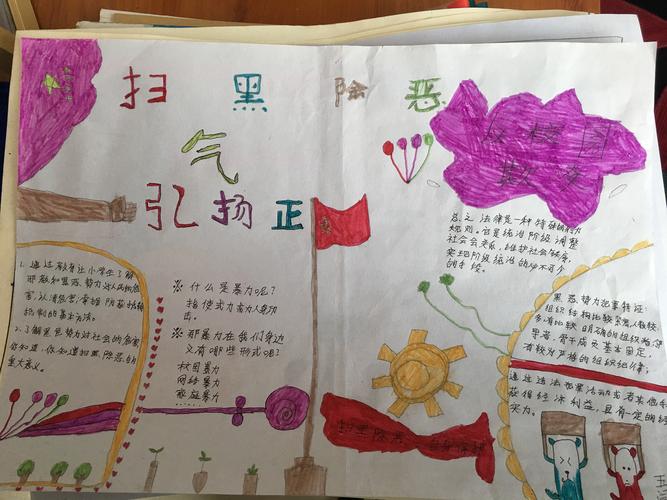 扫黑除恶
气
弘扬正
总之法律是一种特殊的行为
规则。它是统治阶级调整
社会关系,维护社会秩序,
实现阶级统治的必不可少
的手段。
1. 通过教育让小学生了解
邪教和黑恶势力对人民的危
害,认清危害,掌握防范抵
制的基本方法。
2. 了解黑恶势力对社会的危害
你知道,你知道扫黑除恶的
重大意义。
※ 什么是暴力呢?
指使武力击为人身功
击。
※ 那暴力在我们身边
又有哪些形式呢?
校园暴力
网络暴力
家庭暴力
黑恶势力犯事特征:
组织结构比较紧密,人数较
多,有比较明确的组织者、领
导者,骨干成员基本固定,
有较为严格的组织纪律;
通过违法犯罪活动或者其他手
获得经济利益,具有一定的经
实力。
扫黑除恶